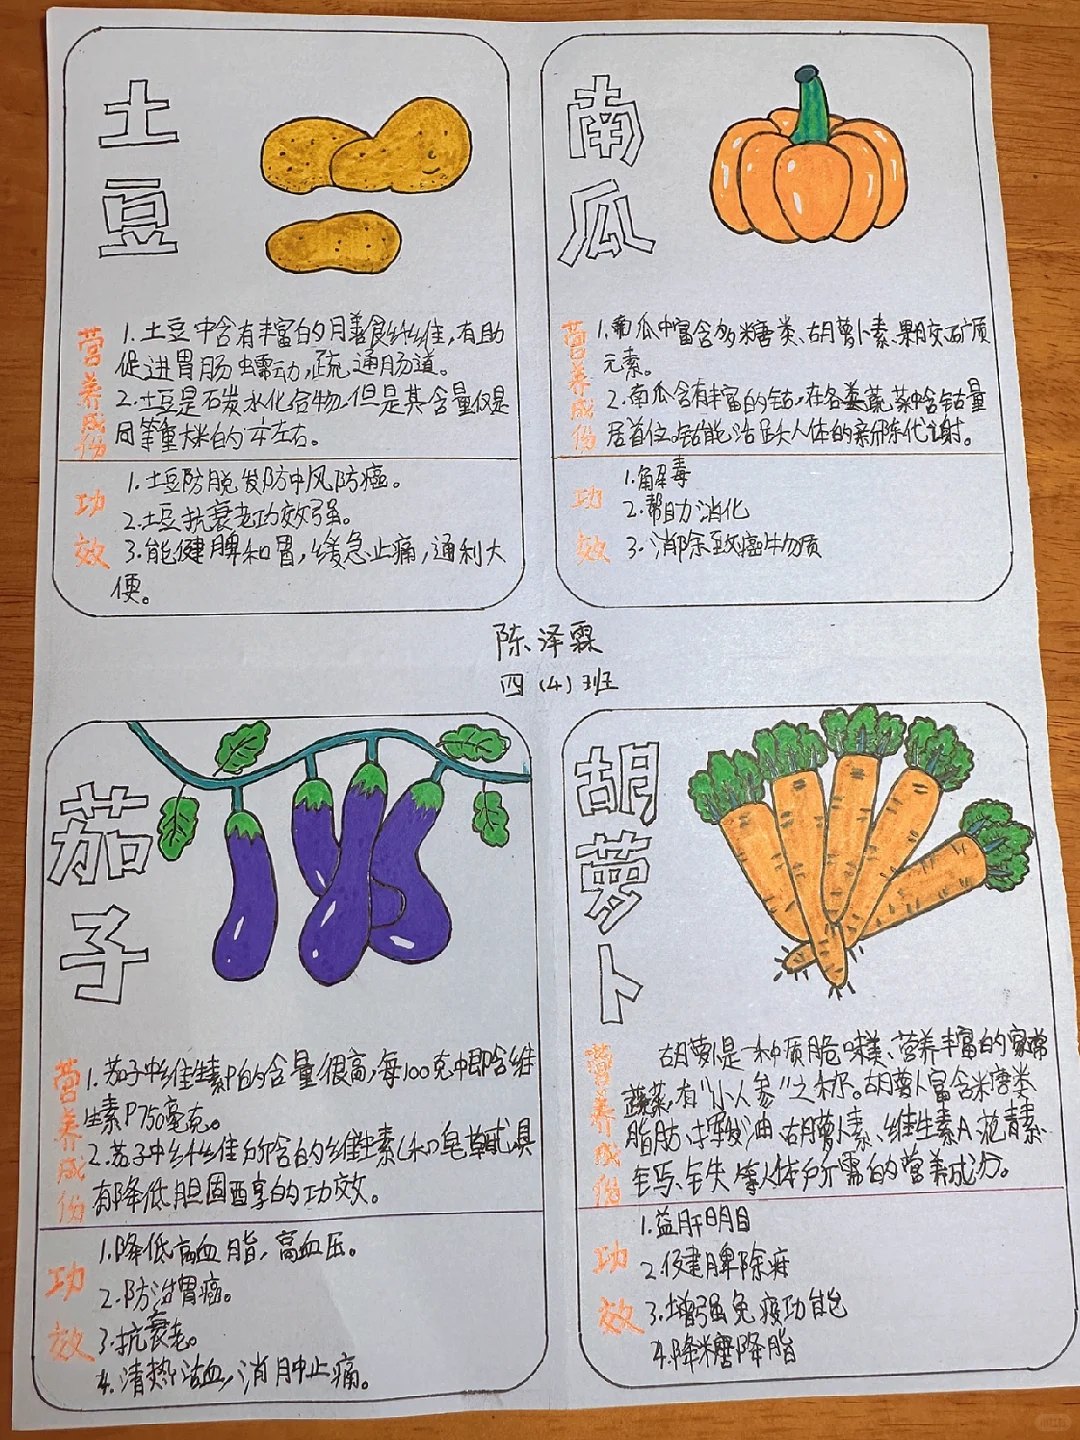 土豆
营养成份
1.土豆中含有丰富的膳食纤维,有助
促进胃肠蠕动,疏通肠道。
2.土豆是石炭水化合物,但是其含量仅是
同等重大米的 左右。
功效
1.土豆防脱发防中风防癌。
2.土豆抗衰老功效强。
3.能健脾和胃,缓急止痛,通利大
便。
南瓜
营养成份
1.南瓜中富含多糖类、胡萝卜素、果胶、矿质
元素。
2.南瓜含有丰富的钴,在各类蔬菜中含钴量
居首位。钴能活跃人体的新陈代谢。
功效
1.解毒
2.帮助消化
3.消除致癌物质
陈泽霖
四(4)班
茄子
营养成份
1.茄子中维生素P的含量很高,每100克中即含维
生素P750毫克。
2.茄子中纤维所含的维生素C和皂草甙具
有降低胆固醇的功效。
功效
1.降低高血脂,高血压。
2.防治胃癌。
3.抗衰老。
4.清热活血,消肿止痛。
胡萝卜
营养成份
胡萝卜是一种质脆味美、营养丰富的家常
蔬菜,有“小人参”之称。胡萝卜富含糖类、
脂肪、挥发油、胡萝卜素、维生素A、花青素、
钙、铁等人体所需的营养成分。
功效
1.益肝明目
2.健脾除疳
3.增强免疫功能
4.降糖降脂